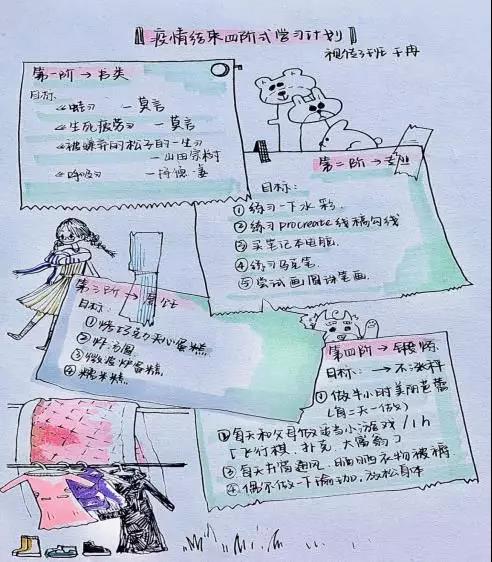 疫情结束四阶式学习计划
视传3班 于冉
第一阶→书类
目标:
《蛙》 —莫言
《生死疲劳》 —莫言
《被嫌弃的松子的一生》
—山田宗树
第二阶→专业
目标:
①练习一下水彩.
②练习procreate线稿勾线
③买笔记本电脑.
④练习马克笔.
⑤尝试画圆珠笔画.
第三阶→
目标:
①烤巧克力夹心蛋糕
②炸汤圆
③微波炉蛋糕
④糯米糕
第四阶→锻炼
目标: →不涨秤
①做半小时美丽芭蕾
(每三天一做)
②每天和父母做或者小游戏/1h
「飞行棋、扑克、大富翁」
③每天开窗通风、晒晒衣物被褥
④偶尔做一下瑜伽,放松身体